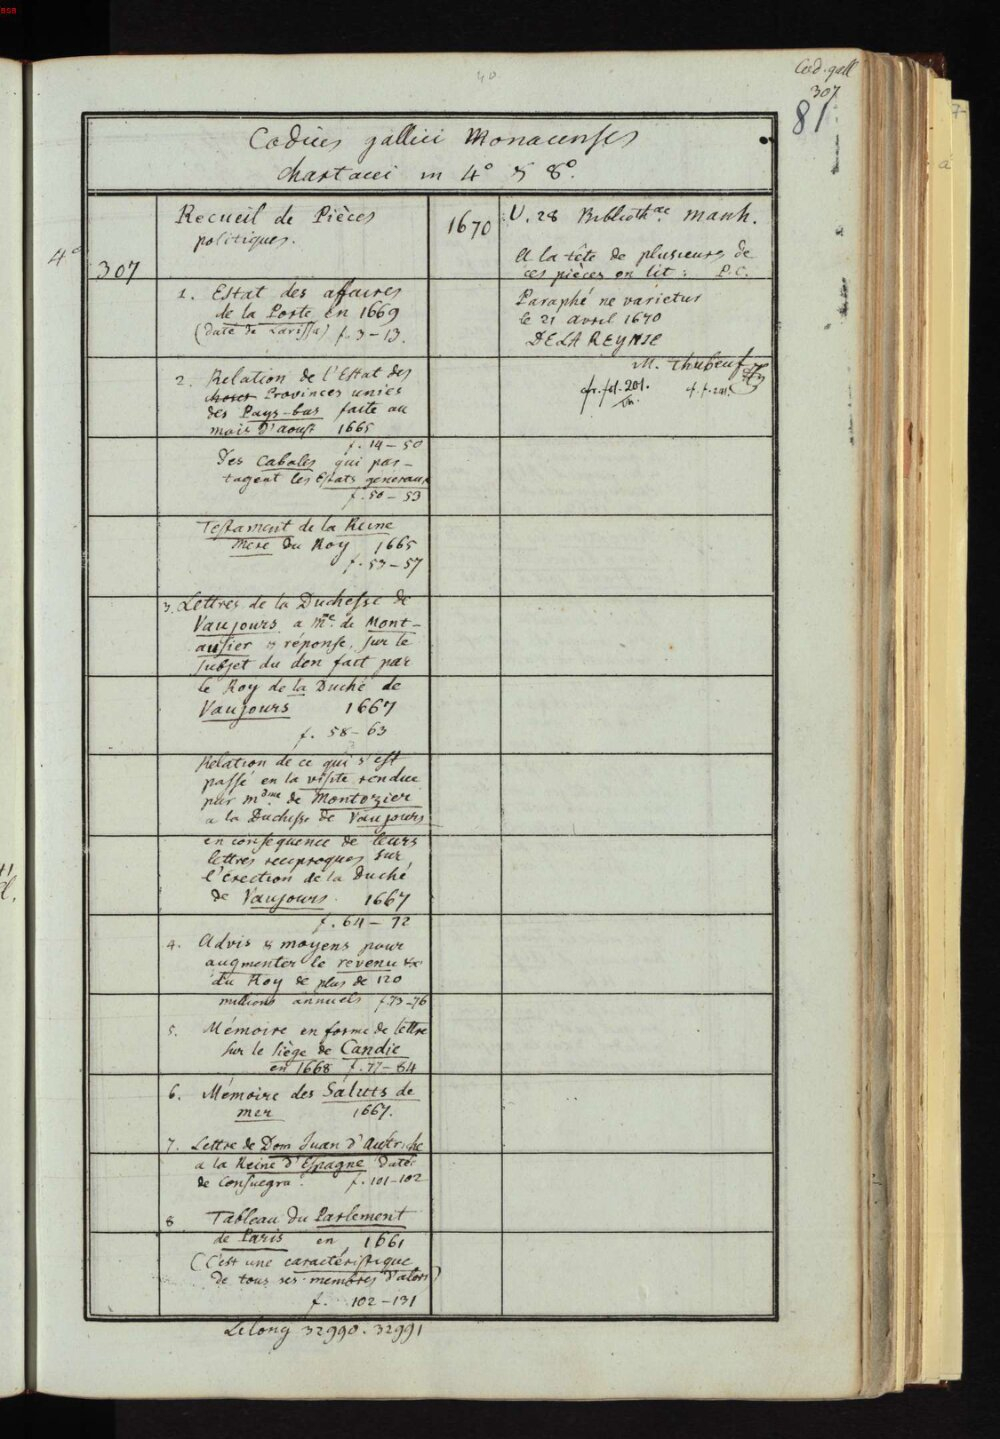 40
Cod. gall
307
81
Codices gallici Monacenses
chartacei in 4° & 8°.
4°
307
Recueil de Pièces
politiques.
1670
U. 28 Biblioth.ae manh.
A la tête de plusieurs de
ces pièces on lit: P.C.
Paraphé ne varietur
le 21 avril 1670
DELAREYNIE
M. Thubeuf
cfr. fol. 201.
cf. f. 201.
1. Estat des affaires
de la Porte en 1669
(Daté de Larissa) f. 3-13.
2. Relation de l'Estat des
Provinces unies
des Pays-bas faite au
mois d'aoust 1665
f. 14-50
Des Cabales qui par-
tagent les Estats generaux
f. 50-53
Testament de la Reine
mere du Roy 1665
f. 53-57
3. Lettres de la Duchesse de
Vaujours a Me. de Mont-
ausier & réponse, sur le
subjet du don fait par
le Roy de la Duché de
Vaujours 1667
f. 58-63
Relation de ce qui s'est
passé en la visite rendue
par mdme. de Montozier
a la Duchesse de Vaujours
en consequence de leurs
lettres reciproques sur
l'érection de la Duché
de Vaujours. 1667
f. 64-72
4. Advis & moyens pour
augmenter le revenu
du Roy de plus de 120
millions annuels f. 73-76
5. Mémoire en forme de lettre
sur le siège de Candie
en 1668 f. 77-84
6. Mémoire des Saluts de
mer 1667.
7. Lettre de Dom Juan d'Autriche
a la Reine d'Espagne datée
de Consuegra. f. 101-102
8 Tableau du Parlement
de Paris en 1661
(C'est une caractéristique
de tous ses membres d'alors)
f. 102-131
Lelong 32990. 32991